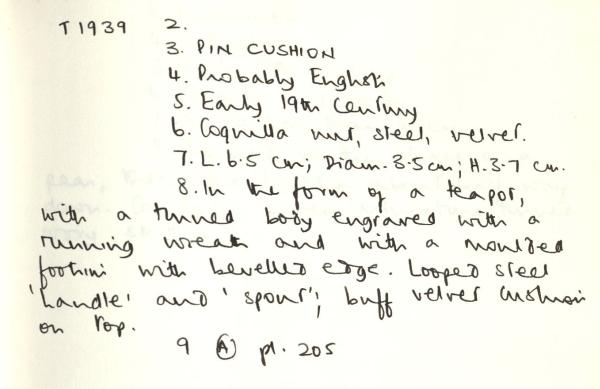 T 1939 2.
3. PIN CUSHION
4. Probably English
5. Early 19th Century
6. Coquilla nut, steel, velvet.
7. L. 6.5 cm; Diam. 3.5 cm; H. 3.7 cm.
8. In the form of a teapot,
with a turned body engraved with a
running wreath and with a moulded
footrim with bevelled edge. Looped steel
'handle' and 'spout'; buff velvet cushion
on top.
9 (A) pl. 205